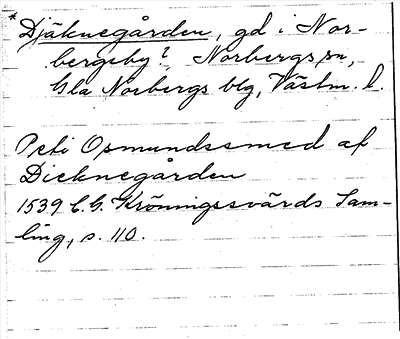 * Djäknegården, gd i Nor-
bergsby?, Norbergs sn,
Gla Norbergs blg, Västm. l.
Peti Osmundssmed af
Dieknegården
1539 C. G. Kröningssvärds Sam-
ling, s. 110.